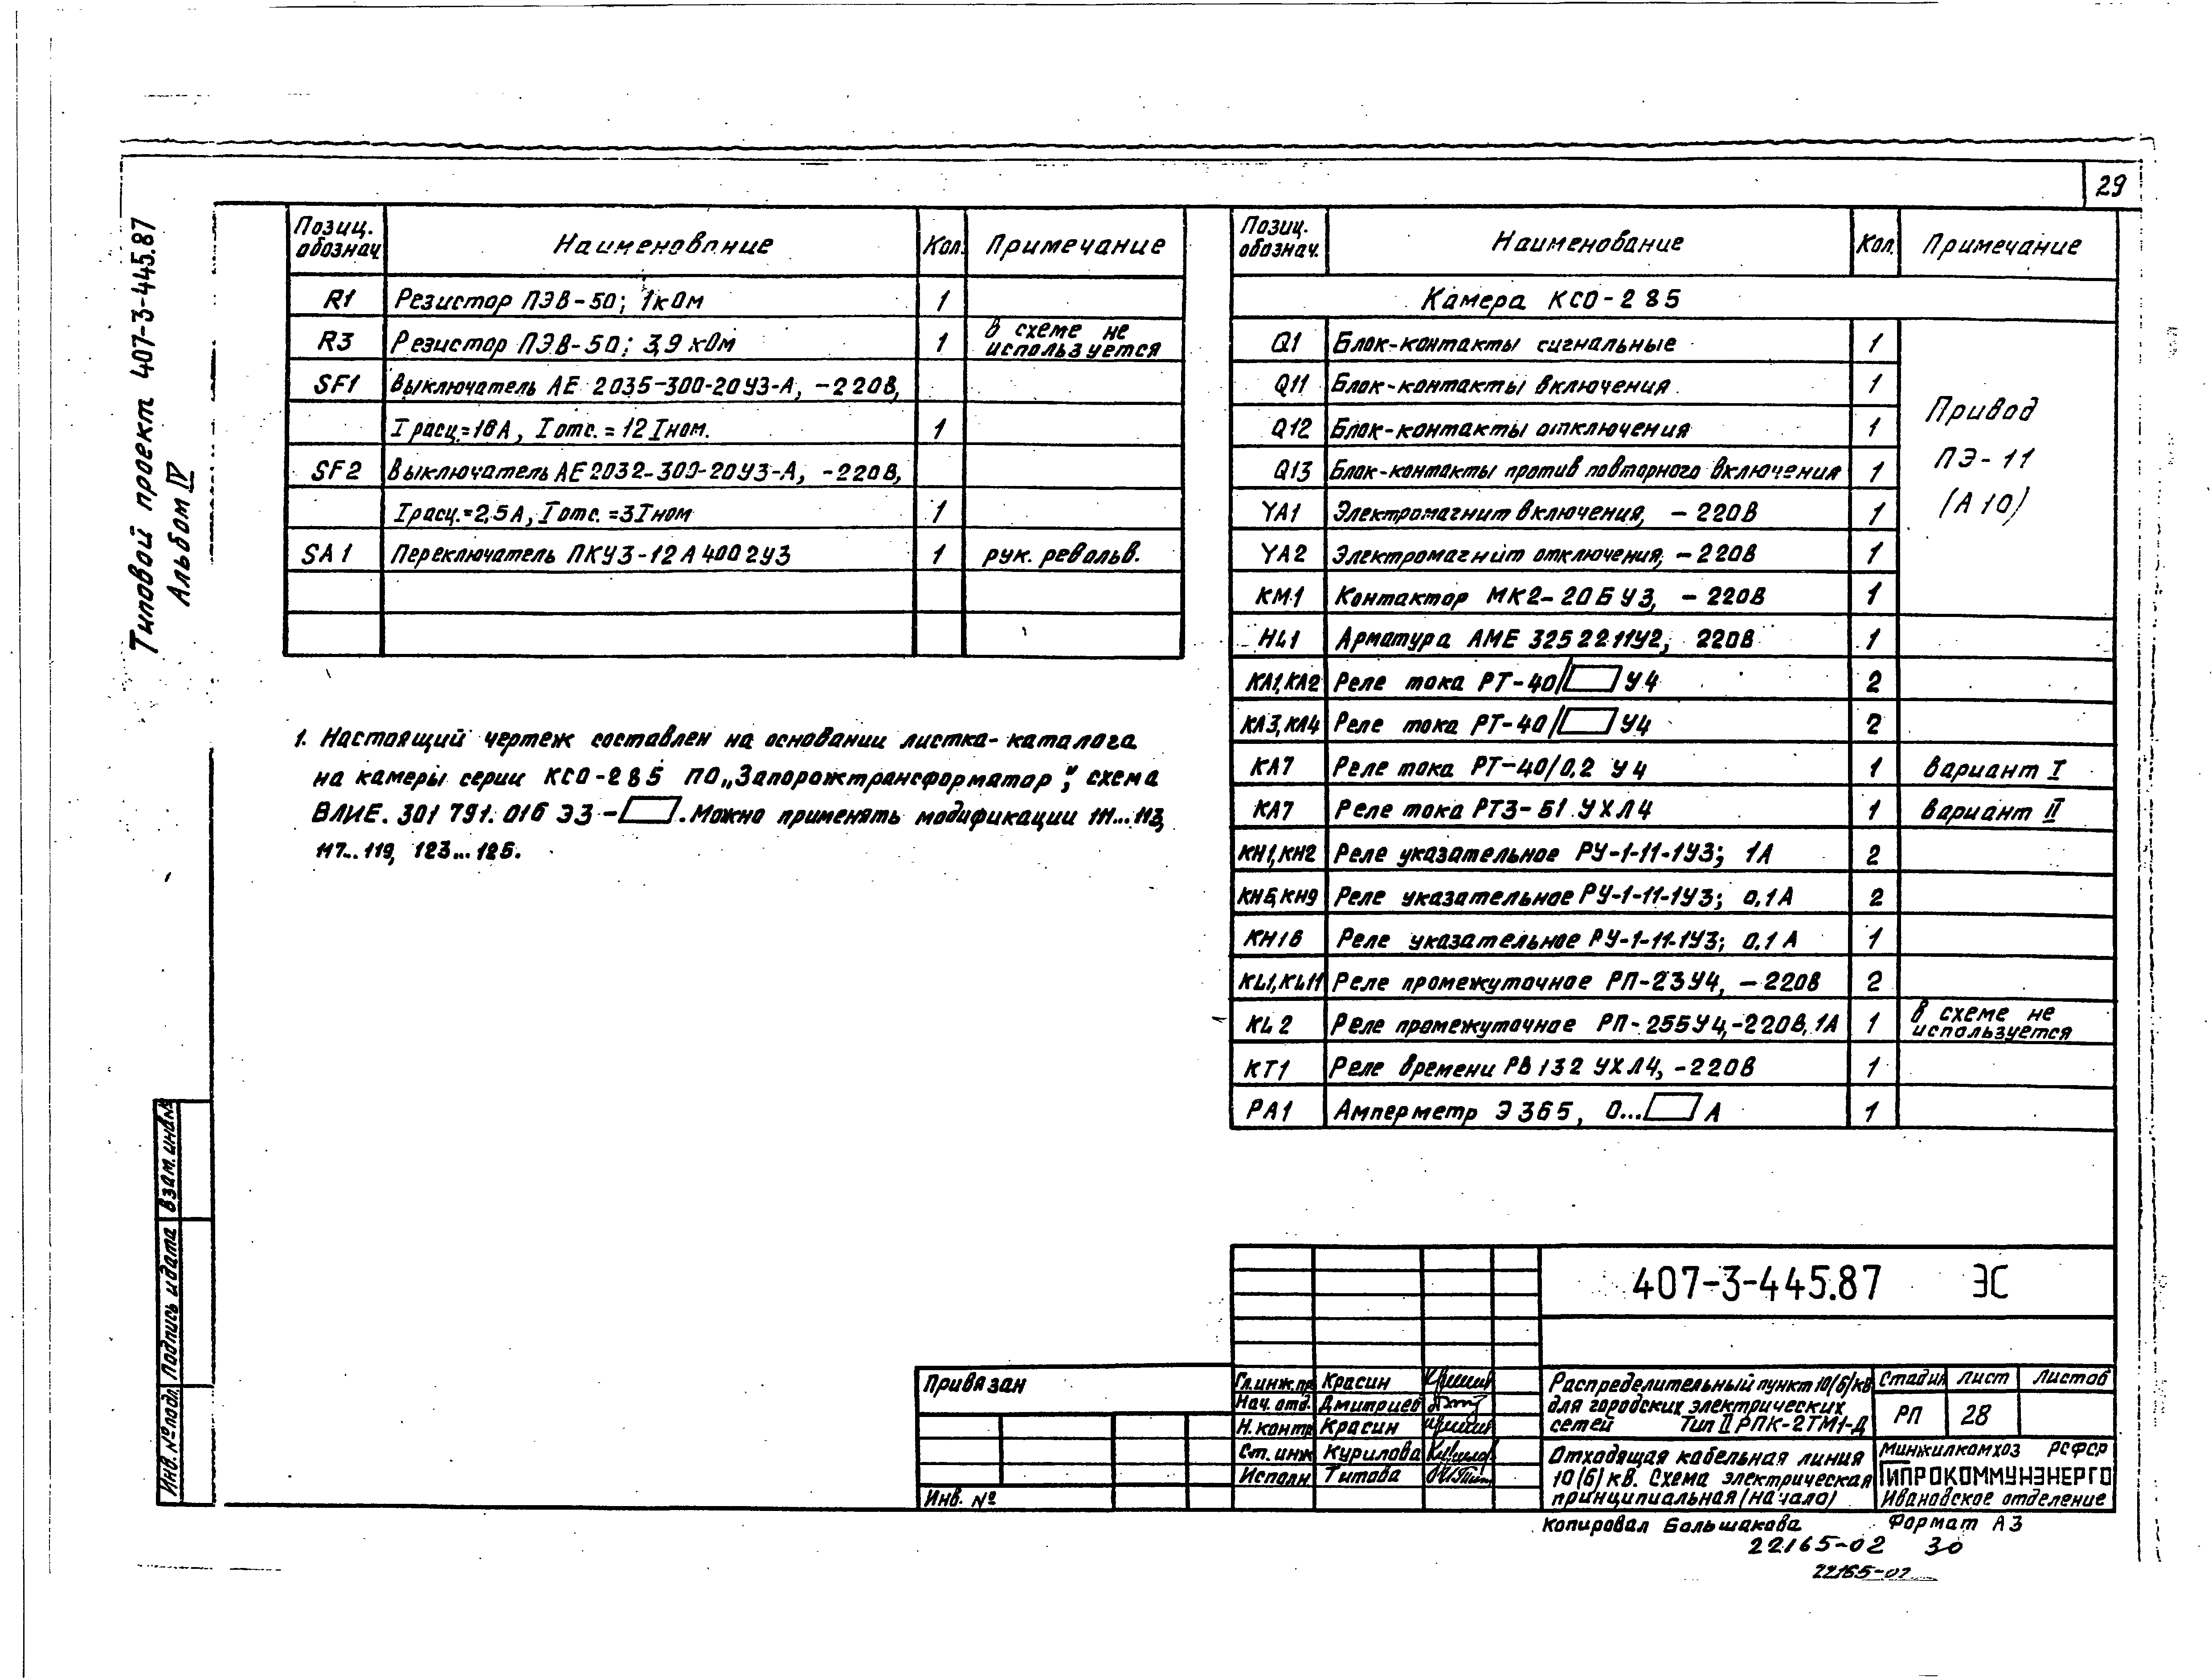 29
Типовой проект 407-3-445.87
Альбом IV
Позиц. обознач. Наименование Кол. Примечание
R1 Резистор ПЭВ-50; 1кОм 1
R3 Резистор ПЭВ-50; 3,9 кОм 1 В схеме не используется
SF1 Выключатель АЕ 2035-300-20У3-А, -220В,
Iрасц.=16А, Iотс.=12Iном. 1
SF2 Выключатель АЕ2032-300-20У3-А, -220В,
Iрасц.=2,5А, Iотс.=3Iном 1
SA1 Переключатель ПКУ3-12А4002У3 1 рук. револьв.
1. Настоящий чертеж составлен на основании листка-каталога
на камеры серии КСО-285 ПО „Запорожтрансформатор”, схема
ВЛИЕ. 301 791. 016 Э3-. Можно применять модификации 111...113,
117...119, 123...125.
Позиц. обознач. Наименование Кол. Примечание
Камера КСО-285
Q1 Блок-контакты сигнальные 1
Q11 Блок-контакты включения 1
Q12 Блок-контакты отключения 1
Q13 Блок-контакты против повторного включения 1
YA1 Электромагнит включения, -220В 1
YA2 Электромагнит отключения, -220В 1
Привод
ПЭ-11
(А10)
KM1 Контактор МК2-20Б У3, -220В 1
HL1 Арматура АМЕ 325 2211У2, 220В 1
KA1,KA2 Реле тока РТ-40/ У4 2
KA3,KA4 Реле тока РТ-40/ У4 2
KA7 Реле тока РТ-40/0,2 У4 1 Вариант I
KA7 Реле тока РТЗ-51 УХЛ4 1 Вариант II
KH1,KH2 Реле указательное РУ-1-11-1У3; 1А 2
KH6,KH9 Реле указательное РУ-1-11-1У3; 0,1А 2
KH16 Реле указательное РУ-1-11-1У3; 0,1А 1
KL1,KL11 Реле промежуточное РП-23У4, -220В 2
KL2 Реле промежуточное РП-255У4,-220В,1А 1 В схеме не используется
KT1 Реле времени РВ132 УХЛ4, -220В 1
PA1 Амперметр Э365, 0... А 1
407-3-445.87 ЭС
Привязан
Инв. №
Гл.инж.пр. Красин
Нач. отд. Дмитриев
Н.контр Красин
Ст. инж Курилова
Исполн Титова
Распределительный пункт 10(6)кВ
для городских электрических
сетей Тип II РПК-2ТМ1-Д
Стадия Лист Листов
РП 28
Отходящая кабельная линия
10(6)кВ. Схема электрическая
принципиальная (начало)
Минжилкомхоз РСФСР
ГИПРОКОММУНЭНЕРГО
Ивановское отделение
Копировал Большакова Формат А3
22165-02 30
22165-02
Взам. инв.№
Подпись и дата
Инв. № подл.